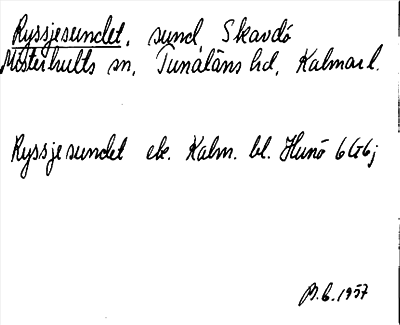 Ryssjesundet, sund, Skavdö
Misterhults sn, Tunaläns hd, Kalmar l.
Ryssjesundet ek. Kalm. bl. Hunö 6G6j
B.C. 1957